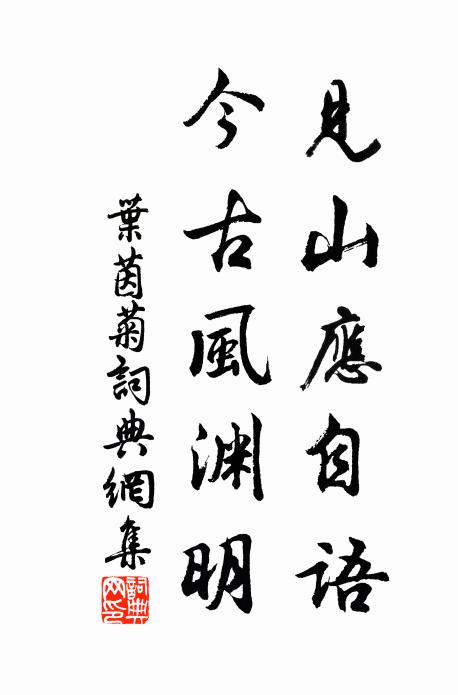 見山應自語
今古風渊明
葉茵菊詞典網集
詞典網印